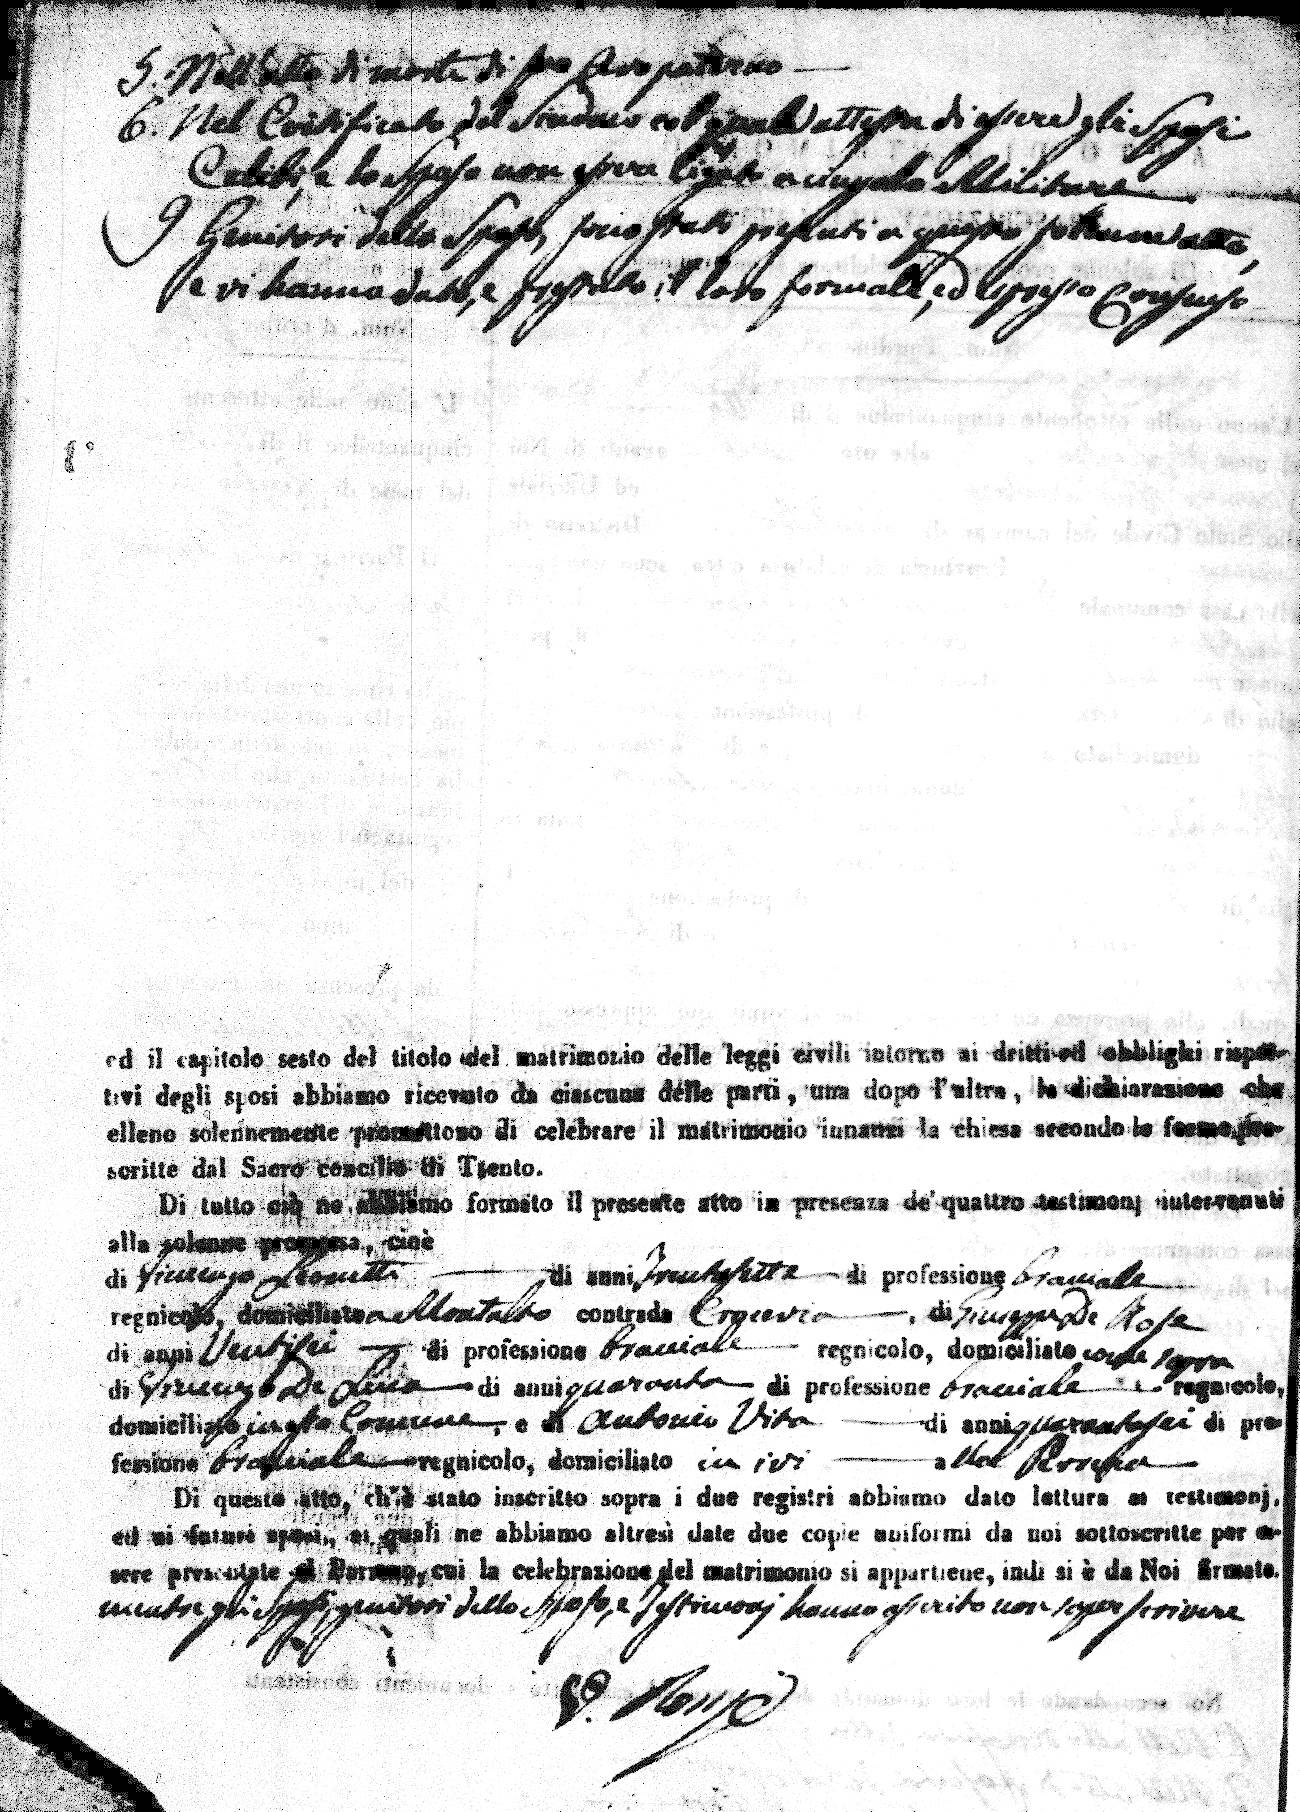 5. Nell'atto di morte di suo Avo paterno
6. Nel Certificato del Sindaco col quale attesta di essere gli Sposi
Celibi, e lo Sposo non essere ligato a cingolo Militare
I Genitori dello Sposo, sono stati presenti a questo solenne atto,
e vi hanno dato, e prestato il loro formale, ed espresso Consenso
1°
ed il capitolo sesto del titolo del matrimonio delle leggi civili intorno ai dritti ed obblighi rispet-
tivi degli sposi abbiamo ricevuto da ciascuna delle parti, una dopo l'altra, la dichiarazione che
elleno solennemente promettono di celebrare il matrimonio innanzi la chiesa secondo le forme pre-
scritte dal Sacro concilio di Trento.
Di tutto ciò ne abbiamo formato il presente atto in presenza de' quattro testimonj intervenuti
alla solenne promessa, cioè
di Vincenzo di anni di professione bracciale
regnicolo, domiciliato a Montalto contrada , di Giuseppe De Rose
di anni Ventisei di professione bracciale regnicolo, domiciliato come sopra
di Vincenzo De Luca di anni quaranta di professione bracciale regnicolo,
domiciliato in sto Comune, e di Antonio Vita di anni quarantasei di pro-
fessione bracciale regnicolo, domiciliato in ivi
Di questo atto, ch'è stato inscritto sopra i due registri abbiamo dato lettura ai testimonj,
ed ai futuri sposi, ai quali ne abbiamo altresì date due copie uniformi da noi sottoscritte per es-
sere presentate al Parroco, cui la celebrazione del matrimonio si appartiene, indi si è da Noi firmato.
mentre gli Sposi, genitori dello Sposo, e Testimonj hanno asserito non saper scrivere